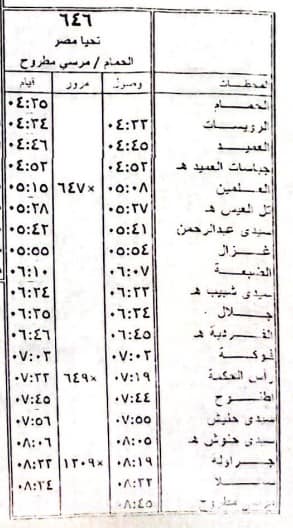 ٦٤٦
تحيا مصر
الحمام / مرسي مطروح
المحطات وصول مرور قيام
الحمام ٠٤:٢٥
الرويسات ٠٤:٣٣ ٠٤:٣٤
العميد ٠٤:٤٥ ٠٤:٤٦
جباسات العميد هـ ٠٤:٥٢ ٠٤:٥٣
العلمين ٠٥:٠٨ ×٦٤٧ ٠٥:١٥
تل العيس هـ ٠٥:٢٧ ٠٥:٢٨
سيدى عبدالرحمن ٠٥:٤١ ٠٥:٤٢
غزال ٠٥:٥٤ ٠٥:٥٥
الضبعة ٠٦:٠٧ ٠٦:١٠
سيدى شبيب هـ ٠٦:٢٣ ٠٦:٢٤
جلال ٠٦:٣٤ ٠٦:٣٥
الفردية هـ ٠٦:٤٥ ٠٦:٤٦
فوكة ٠٧:٠٢ ٠٧:٠٣
رأس الحكمة ٠٧:١٩ ×٦٤٩ ٠٧:٢٢
اطنوح ٠٧:٤٤ ٠٧:٤٥
سيدى حنيش ٠٧:٥٥ ٠٧:٥٦
سيدى حنوش هـ ٠٨:٠٥ ٠٨:٠٦
جراولة ٠٨:١٩ ×١٣٠٩ ٠٨:٢٢
٠٨:٣٣ ٠٨:٣٤
مرسى مطروح ٠٨:٤٥